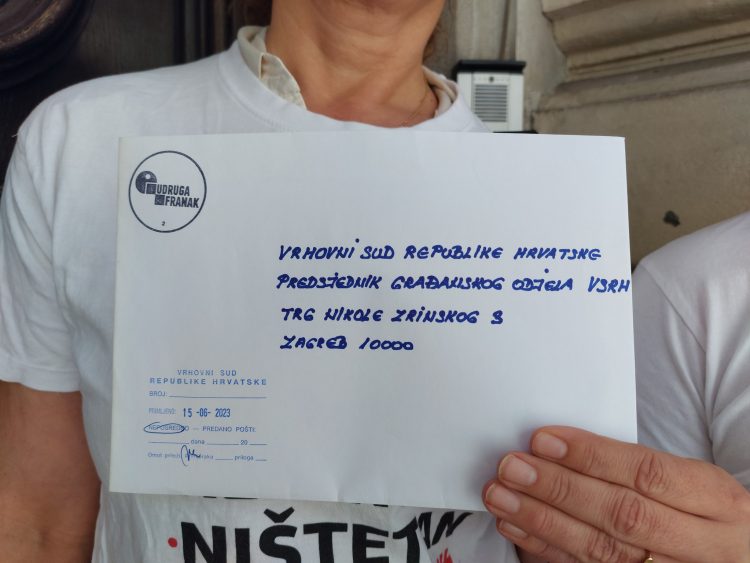 UDRUGA
FRANAK
2
VRHOVNI SUD REPUBLIKE HRVATSKE
PREDSJEDNIK GRAĐANSKOG ODJELA VSRH
TRG NIKOLE ZRINSKOG 3
ZAGREB 10000
VRHOVNI SUD
REPUBLIKE HRVATSKE
BROJ:
PRIMLJENO: 15-06-2023
NEPOSREDNO — PREDANO POŠTI
dana 20
Omot priloga
NIŠTETAN